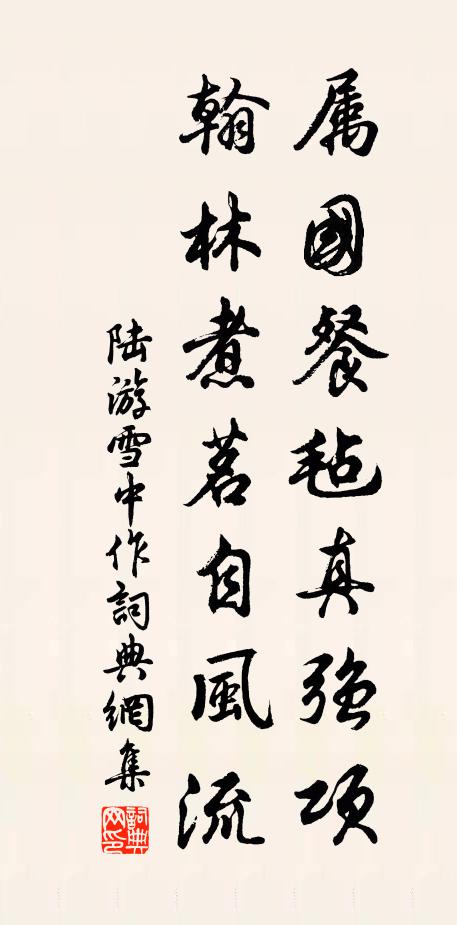 属國餐毡真強項
翰林煮茗自風流
陆游雪中作詞典網集
詞典网印